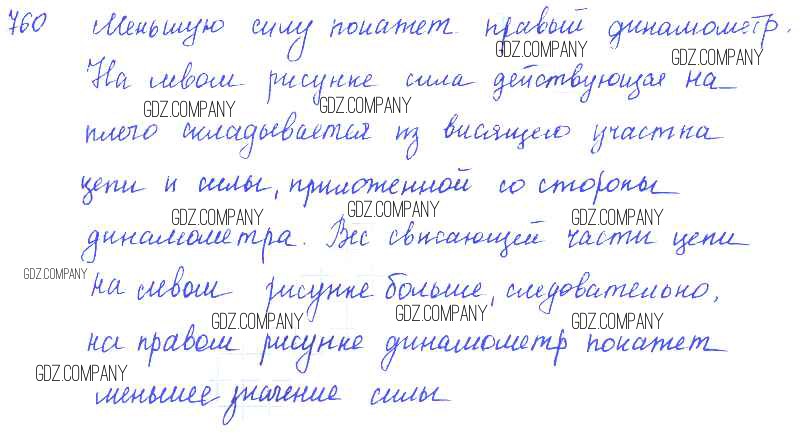 760 Меньшую силу покажет правый динамометр.
GDZ.COMPANY
GDZ.COMPANY
На левом рисунке сила действующая на
GDZ.COMPANY GDZ.COMPANY
плечо складывается из висящего участка
цепи и силы, приложенной со стороны
GDZ.COMPANY GDZ.COMPANY GDZ.COMPANY
динамометра. Вес свисающей части цепи
GDZ.COMPANY
на левом рисунке больше, следовательно,
GDZ.COMPANY GDZ.COMPANY GDZ.COMPANY
на правом рисунке динамометр покажет
GDZ.COMPANY
меньшее значение силы